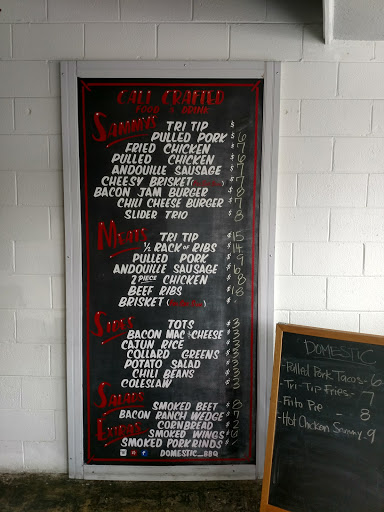 CALI CRAFTED
FOOD & DRINK
SAMMYS
TRI TIP $
PULLED PORK $6
FRIED CHICKEN $7
PULLED CHICKEN $6
ANDOUILLE SAUSAGE $7
CHEESY BRISKET $
BACON JAM BURGER $8
CHILI CHEESE BURGER $7
SLIDER TRIO $8
MEATS
TRI TIP $15
1/2 RACK OF RIBS $14
PULLED PORK $9
ANDOUILLE SAUSAGE $6
2 PIECE CHICKEN $8
BEEF RIBS $18
BRISKET $
SIDES
TOTS $3
BACON MAC & CHEESE $3
CAJUN RICE $3
COLLARD GREENS $3
POTATO SALAD $3
CHILI BEANS $3
COLESLAW $3
SALADS
SMOKED BEET $8
BACON RANCH WEDGE $7
EXTRAS
CORNBREAD $2
SMOKED WINGS $6
SMOKED PORK RINDS $
DOMESTIC_BBQ
DOMESTIC
-Pulled Pork Tacos - 6
-Tri-Tip Fries - 7
-Frito Pie - 8
-Hot Chicken Sammy. 9